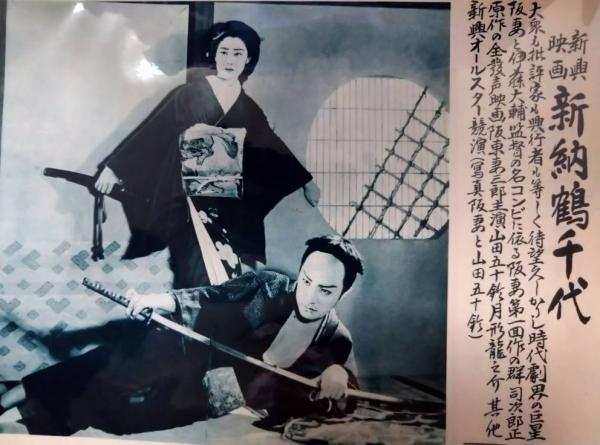 新興
映画
新納鶴千代
大衆も批評家も興行者も等しく待望久しかりし時代劇界の巨星
阪妻と伊藤大輔監督の名コンビに依る阪妻第一回作の群司次郎正
原作の全發声映画阪東妻三郎主演山田五十鈴月形龍之介其他
新興オールスター競演(寫真阪妻と山田五十鈴)